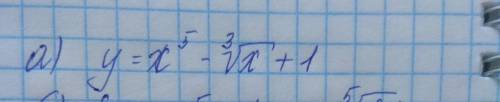 a) y = x⁵ - ∛x + 1